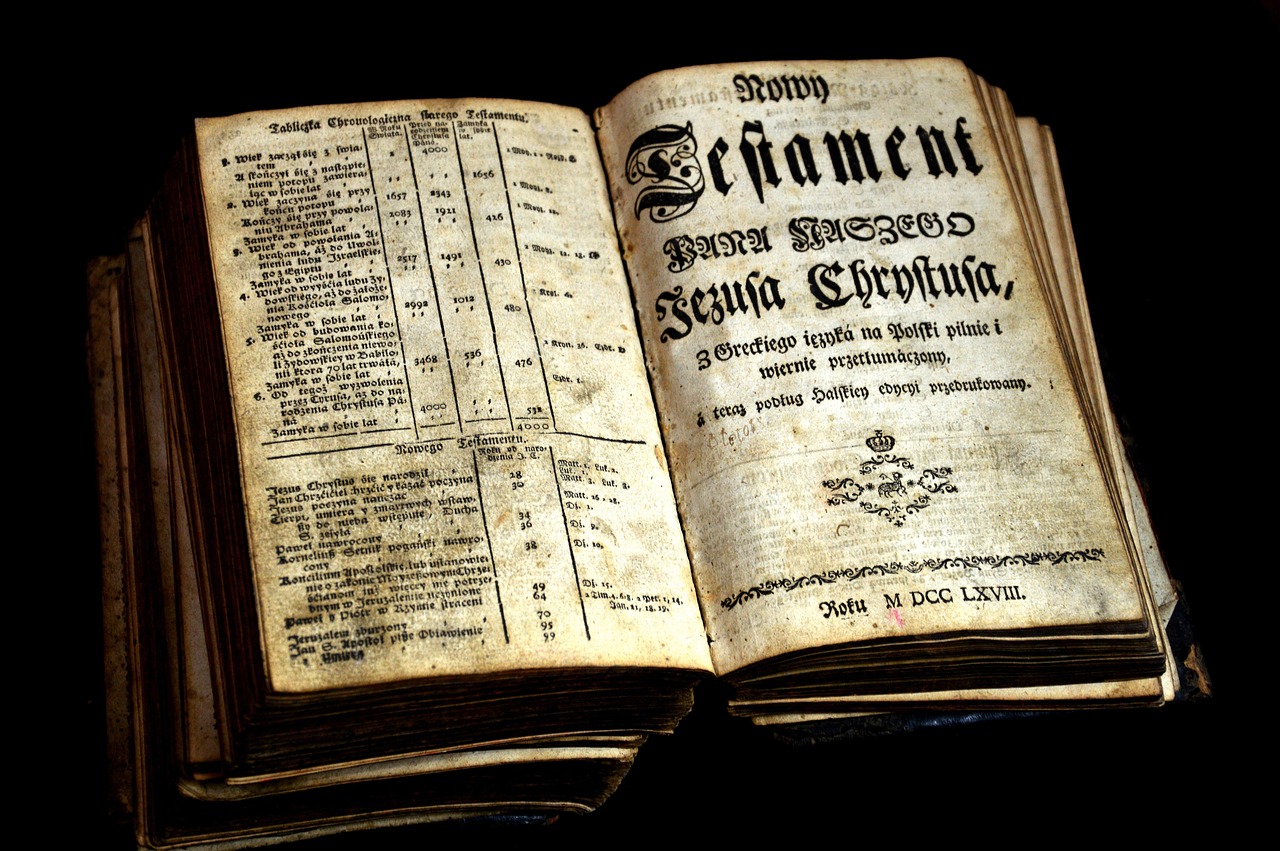 Tabliczka Chronologiczna starego Testamentu.
W Roku Swiata. | Przed narodzeniem Chrystusa Pana. | Zamyka w sobie lat.
1. Wiek zaczął się z swia-
tem 1 4000 1 Moy. 1
A skończył się z nastąpie-
niem potopu zawiera-
iąc w sobie lat 1656
2. Wiek zaczyna się przy
końcu potopu 1657 2343
Kończy się przy powola-
niu Abrahama 2083 1921
Zamyka w sobie lat 426
3. Wiek od powołania A-
brahama, aż do Uwol-
nienia ludu Izraelskie-
go z Egiptu 2517 1491
Zamyka w sobie lat 430
4. Wiek od wyyścia ludu Zy-
dowskiego, aż do założe-
nia Kościoła Salomo-
nowego 2992 1012
Zamyka w sobie lat 480
5. Wiek od budowania ko-
ścioła Salomońskiego
aż do zkończenia niewo-
li Zydowskiey w Babilo-
nii ktora 70 lat trwała, 3468 536
Zamyka w sobie lat 476
6. Od tegoż wyzwolenia
przez Cyrusa, aż do na-
rodzenia Chrystusa Pa-
na 4000
Zamyka w sobie lat 532
4000
Nowego Testamentu.
Roku od naro-
dzenia J. C.
Jezus Chrystus się narodził
Jan Chrzciciel chrzcić y kazać poczyna 28
Jezus poczyna nauczać 30
Cierpi, umiera y zmartwych wstaw-
szy do nieba wstępuie, Ducha
S. zsyła 34
Paweł nawrocony 36
Korneliusz Setnik pogański nawro-
cony 38
Koncilium Apostolskie, lub ustanowie-
nie o zakonie Moyżeszowym Chrze-
ścianom iuż więcey nie potrze-
bnym w Jeruzalem uczynione 49
Paweł y Piotr w Rzymie straceni 64
Jeruzalem zburzony 70
Jan S. Apostoł pisze Obiawienie 95
y umiera 99
Nowy
Testament
PANA NASZEGO
Jezusa Chrystusa,
Z Greckiego ięzyká na Polski pilnie i
wiernie przetłumáczony,
á teraz podług Halskiey edycyi przedrukowany.
Roku M DCC LXVIII.